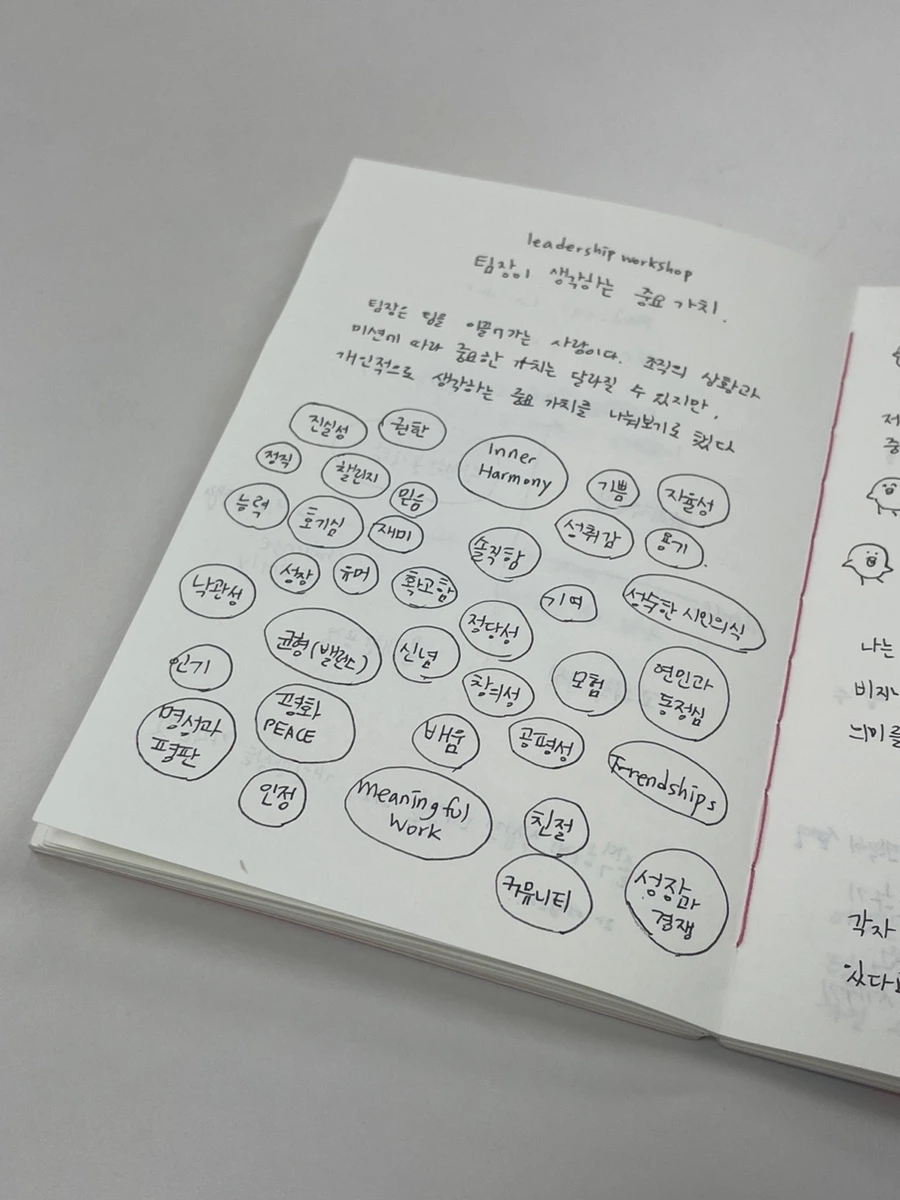 leadership workshop
팀장이 생각하는 중요 가치.
팀장은 팀을 이끌어가는 사람이다. 조직의 상황과
미션에 따라 중요한 가치는 달라질 수 있지만,
개인적으로 생각하는 중요 가치를 나눠보기로 했다
진실성
권한
Inner
Harmony
기쁨
자율성
정직
챌린지
믿음
능력
호기심
재미
솔직함
성취감
용기
낙관성
성장
유머
확고함
기여
성숙한 시민의식
정당성
인기
균형(밸런스)
신념
창의성
모험
연민과
동정심
명성과
평판
평화
PEACE
배움
공평성
Friendships
인정
meaningful
work
친절
커뮤니티
성장과
경쟁
제
중
나는
비지니
의미를
각자
있다